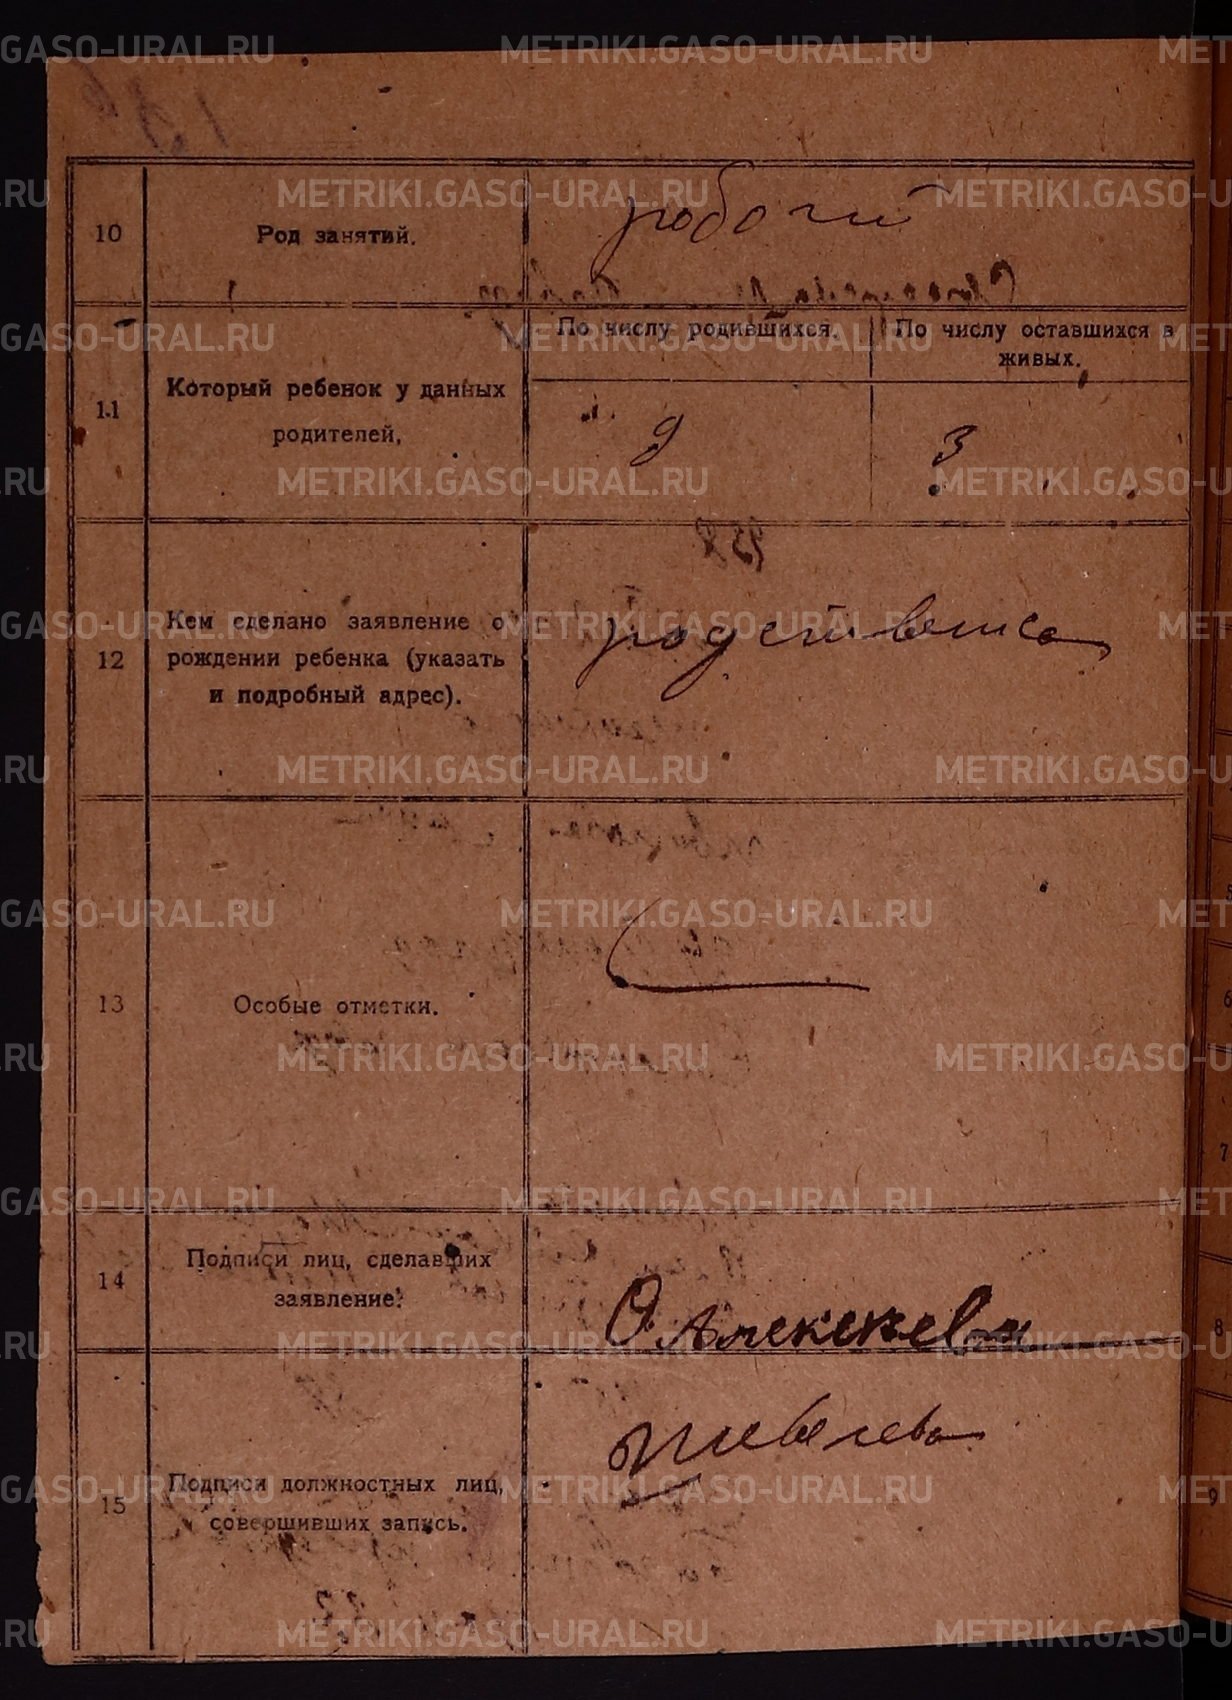 METRIKI.GASO-URAL.RU
10
Род занятий.
рабочий
11
Который ребенок у данных
родителей.
По числу родившихся.
По числу оставшихся в
живых.
9
3
12
Кем сделано заявление о
рождении ребенка (указать
и подробный адрес).
родственица
13
Особые отметки.
14
Подписи лиц, сделавших
заявление.
О Алексеева
15
Подписи должностных лиц,
совершивших запись.